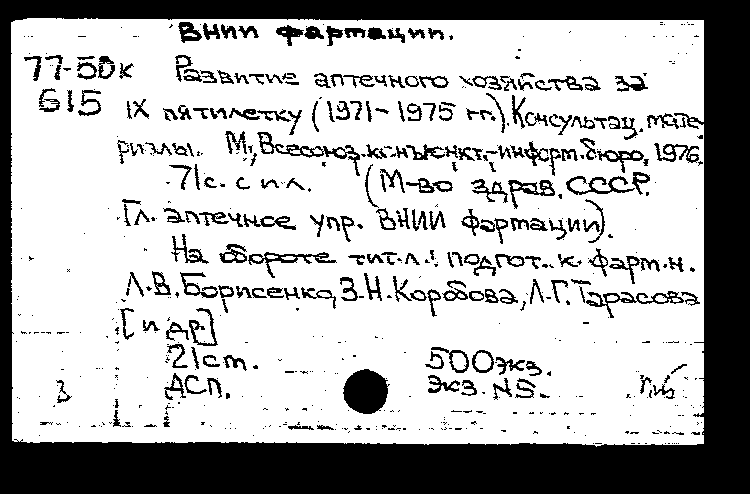 ВНИИ фартации.
77-50к Развитие аптечного хозяйства за
615 IX пятилетку (1971-1975 гг.). Консультац. мате-
риалы. М., Всесоюз. конъюнкт.-информ. бюро, 1976.
71с. с ил. (М-во здрав. СССР.
Гл. аптечное упр. ВНИИ фартации).
На обороте тит.л.: подгот. к. фарм.н.
Л.В. Борисенко, З.Н. Коробова, Л.Г. Тарасова
[и др.]
21см. 500экз.
ДСП. Экз. N5.
3